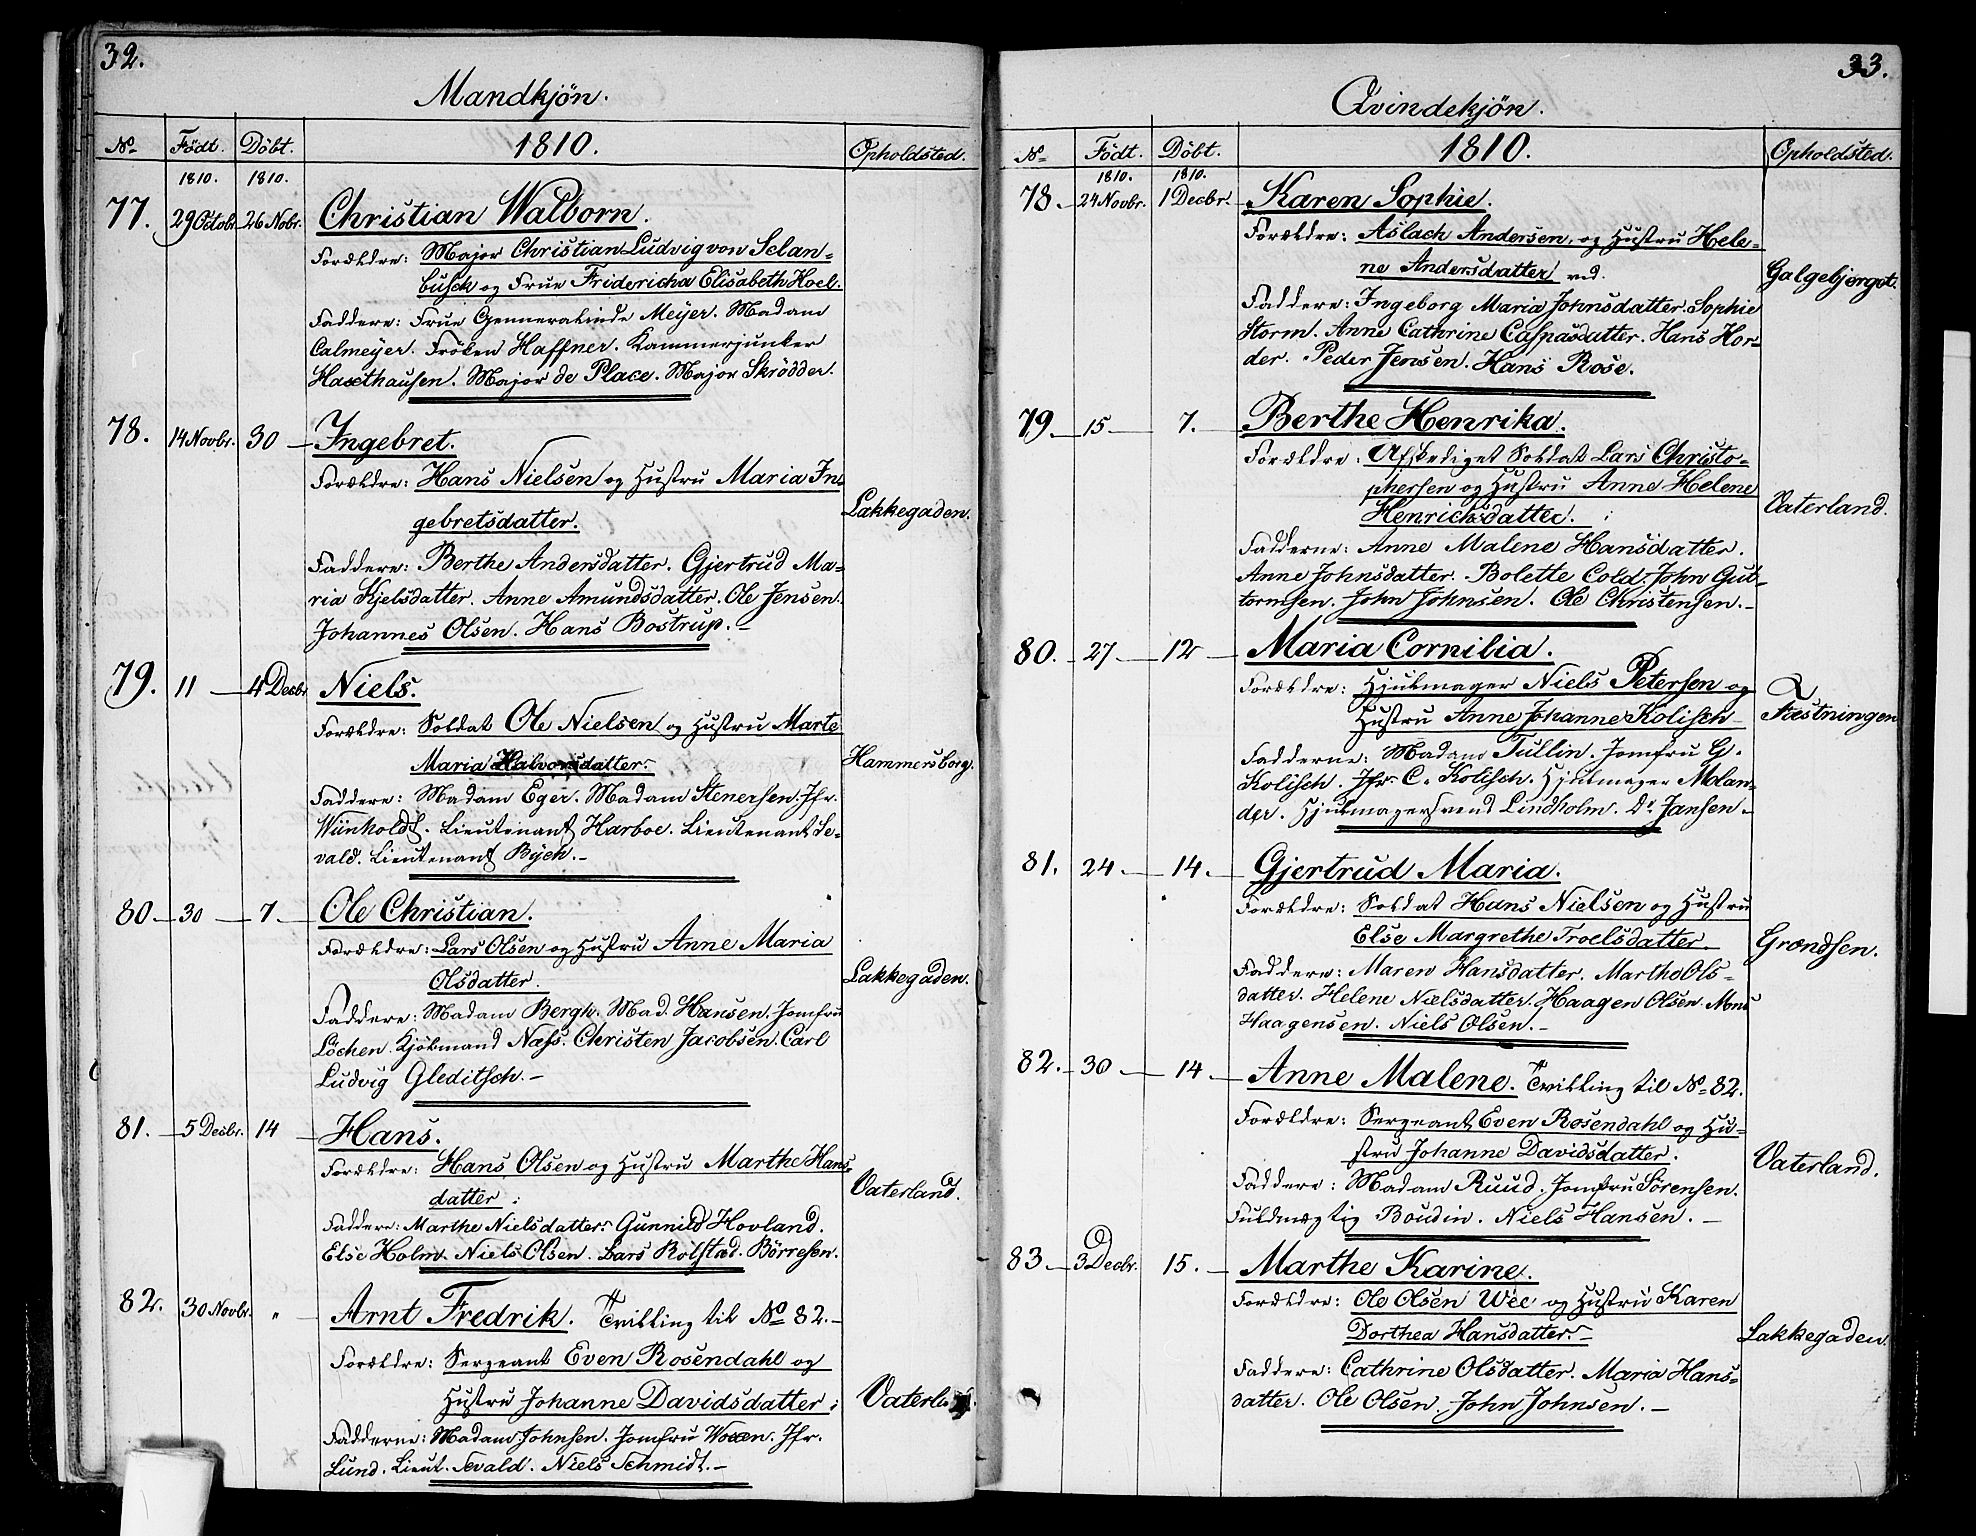 32.
Mandkjön.
No Födt. Döbt. 1810. Opholdsted.
1810. 1810.
77. 29 Octobr. 26 Nobr. Christian Walborn.
Forældre: Major Christian Ludvig von Selan-
busch og Frue Fridericha Elisabeth Hoel.
Faddere: Frue Generalinde Meÿer. Madam
Calmeÿer. Fröken Haffner. Kammerjunker
Haxthausen. Major de Place. Major Skrödder.
78. 14 Novbr. 30 Ingebret.
Forældre: Hans Nielsen og Hustru Maria In-
gebretsdatter. Lakkegaden.
Faddere: Berthe Andersdatter. Gjertrud Ma-
ria Kjelsdatter. Anne Amundsdatter. Ole Jensen.
Johannes Olsen. Hans Bostrup.
79. 11 4 Decbr. Niels.
Forældre: Soldat Ole Nielsen og Hustru Marte
Maria Halvorsdatter. Hammersborg.
Faddere: Madam Eger. Madam Stenersen. Jfr.
Wünholdt. Lieutenant Harboe. Lieutenant Se-
vald. Lieutenant Bÿch.
80 30 7 Ole Christian.
Forældre: Lars Olsen og Hustru Anne Maria
Olsdatter. Lakkegaden.
Faddere: Madam Bergh. Mad. Hansen. Jomfru
Löchen. Kjöbmand Næss. Christen Jacobsen. Carl
Ludvig Gleditsch.
81. 5 Decbr. 14 Hans.
Forældre: Hans Olsen og Hustru Marthe Hans
datter: Vaterland.
Faddere: Marthe Nielsdatter. Gunnild Hovland.
Else Holm. Niels Olsen. Lars Rolstad. Börresen.
82. 30 Novbr. " Arnt Fredrik. Tvilling til No 82.
Forældre: Sergeant Even Rosendahl og
Hustru Johanne Davidsdatter: Vaterla
Fadderne: Madam Johnsen. Jomfru Woxen. Jfr.
Lund. Lieut. Sevald. Niels Schmidt.
33.
Qvindekjön.
No Födt. Döbt. 1810. Opholdsted.
1810. 1810.
78. 24 Novbr. 1 Decbr. Karen Sophie.
Forældre: Aslach Andersen, og Hustru Hele-
ne Andersdatter ved. Galgebjerget.
Faddere: Ingeborg Maria Johnsdatter. Sophie
Storm. Anne Cathrine Caspasdatter. Hans Hor-
der. Peder Jensen. Hans Rose.
79. 15 7. Berthe Henrika.
Forældre: Afskediget Soldat Lars Christo-
phersen og Hustru Anne Helene
Henrichsdatter. Vaterland.
Fadderne: Anne Malene Hansdatter.
Anne Johnsdatter. Bolette Cold. John Gut-
tormsen. John Johnsen. Ole Christensen.
80. 27 12 Maria Cornilia.
Forældre: Hjulmager Niels Petersen og
Hustru Anne Johanne Kolisch Fæstningen
Fadderne: Madame Tullin. Jomfru G.
Kolisch. Jfr. C. Kolisch. Hjulmager Molan-
der. Hjulmagersvend Lindholm. Do Jansen.
81. 24 14. Gjertrud Maria.
Forældre: Soldat Hans Nielsen og Hustru
Else Margrethe Troelsdatter. Grændsen.
Faddere: Maren Hansdatter. Martha Ols-
datter. Helene Nælsdatter. Haagen Olsen. Mons
Haagensen. Niels Olsen.
82. 30 14 Anne Malene. Tvilling til No 82.
Forældre: Sergeant Even Rosendahl og Hu-
stru Johanne Davidsdatter. Vaterland.
Faddere: Madam Ruud. Jomfru Sörensen.
Fuldmægtig Boudin. Niels Hansen.
83 3 Decbr. 15. Marthe Karine.
Forældre: Ole Olsen Wee og Hustru Karen
Dorthea Hansdatter. Lakkegaden.
Faddere: Cathrine Olsdatter. Maria Hans-
datter. Ole Olsen. John Johnsen.